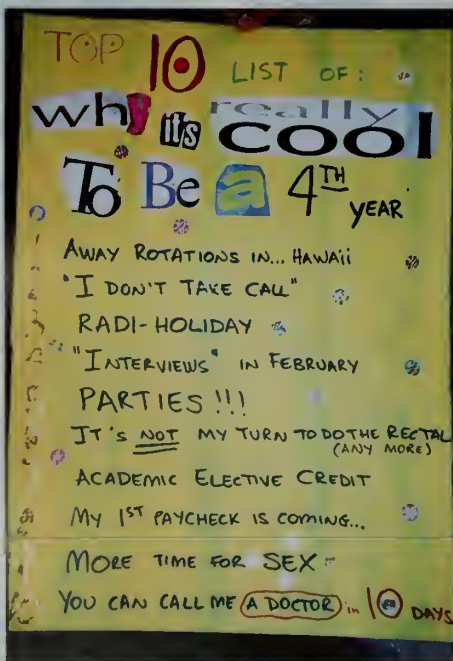 TOP 10 LIST OF:
why it's really
COOL
To Be a 4TH YEAR
AWAY ROTATIONS IN... HAWAII
"I DON'T TAKE CALL"
RADI-HOLIDAY
"INTERVIEWS" IN FEBRUARY
PARTIES !!!
IT'S NOT MY TURN TO DO THE RECTAL
(ANY MORE)
ACADEMIC ELECTIVE CREDIT
MY 1ST PAYCHECK IS COMING...
MORE TIME FOR SEX
YOU CAN CALL ME A DOCTOR in 10 DAYS